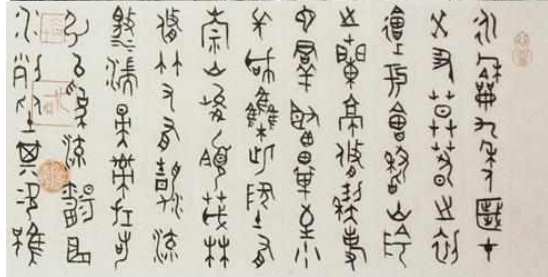 永和九年歲在
癸丑暮春之初
會于會稽山陰
之蘭亭脩禊事
也群賢畢至少
長咸集此地有
崇山峻領茂林
脩竹又有清流
激湍映帶左右
引以為流觴曲
水列坐其次雖